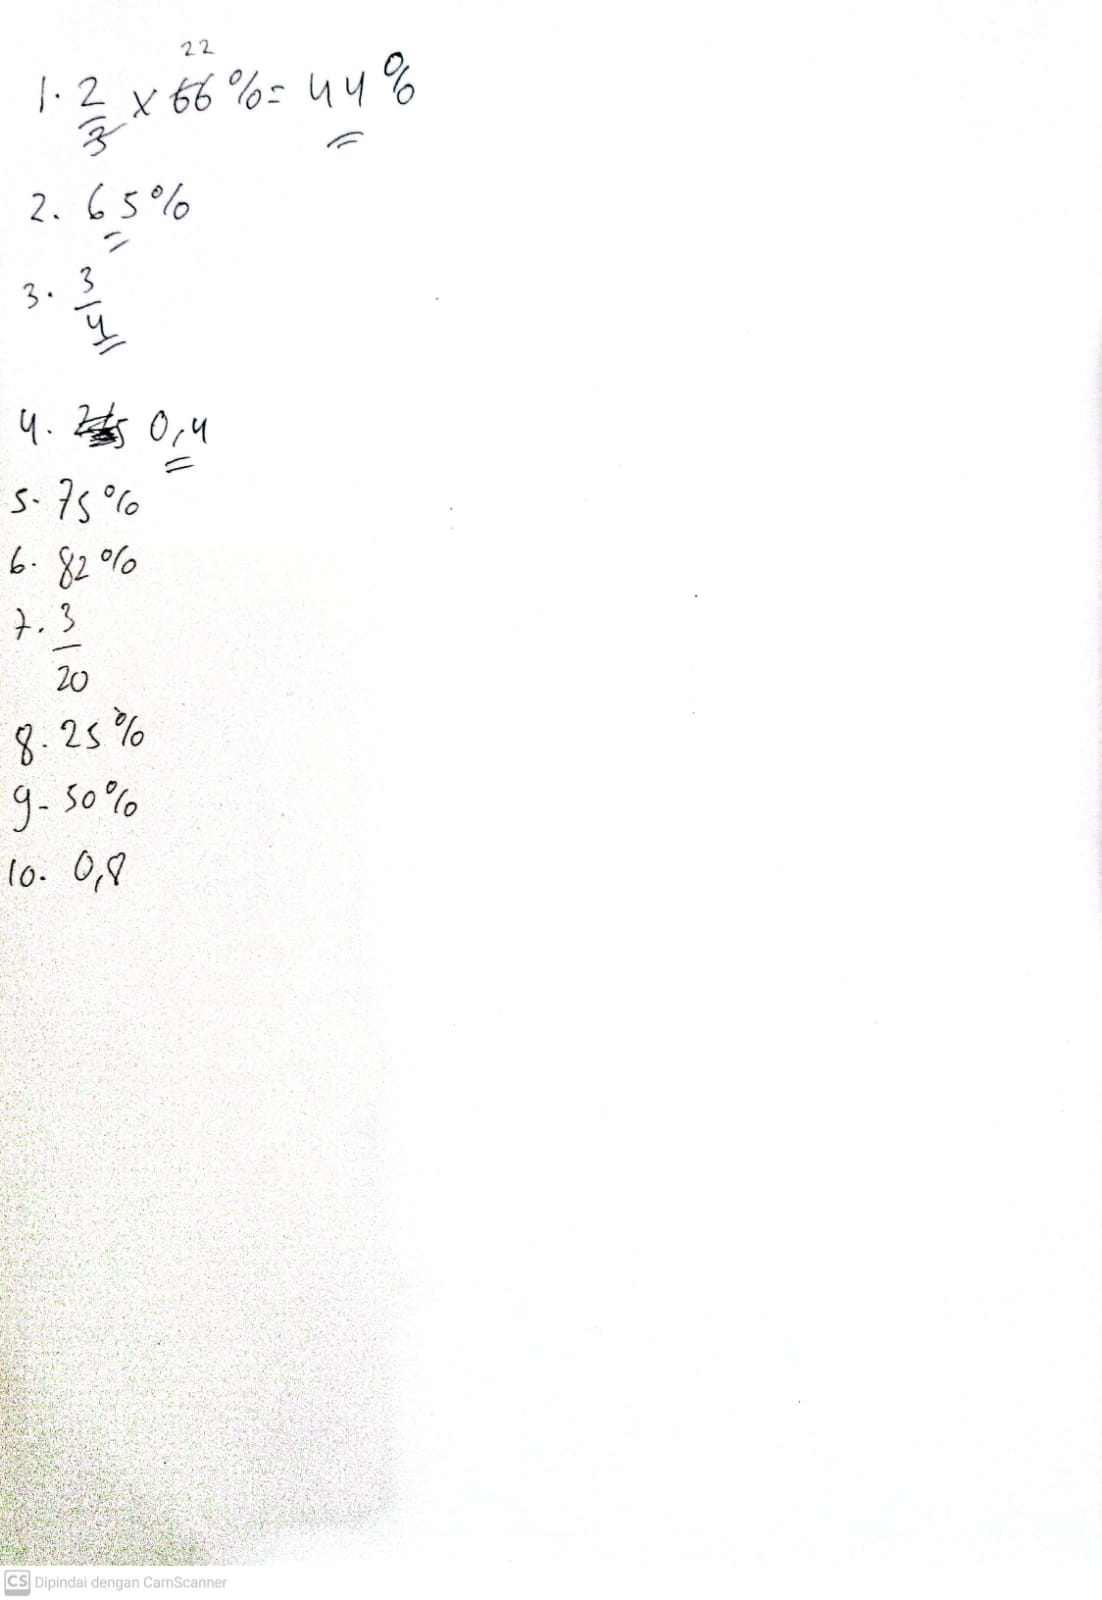 22
1. 2/3 x 66 % = 44 %
2. 65 %
3. 3/4
4. 0,4
5. 75 %
6. 82 %
7. 3/20
8. 25 %
9. 50 %
10. 0,8
CS Dipindai dengan CamScanner